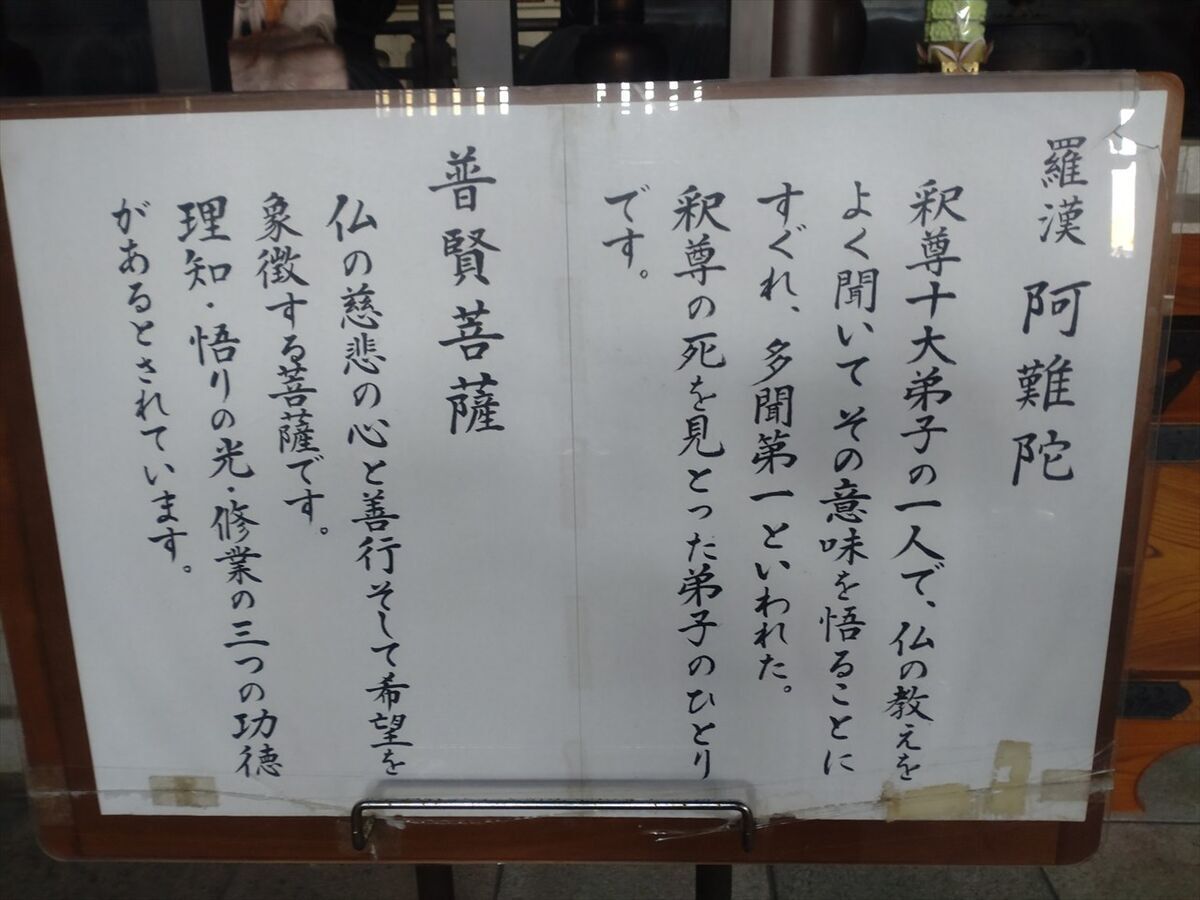 羅漢 阿難陀
釈尊十大弟子の一人で、仏の教えを
よく聞いてその意味を悟ることに
すぐれ、多聞第一といわれた。
釈尊の死を見とった弟子のひとり
です。
普賢菩薩
仏の慈悲の心と善行そして希望を
象徴する菩薩です。
理知・悟りの光・修業の三つの功徳
があるとされています。